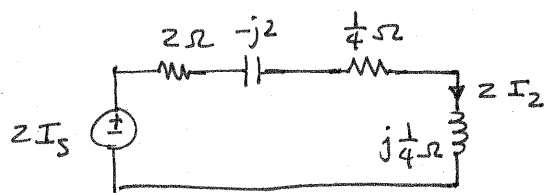 2Ω -j2 1/4 Ω
2 I_2
2 I_S
j 1/4 Ω